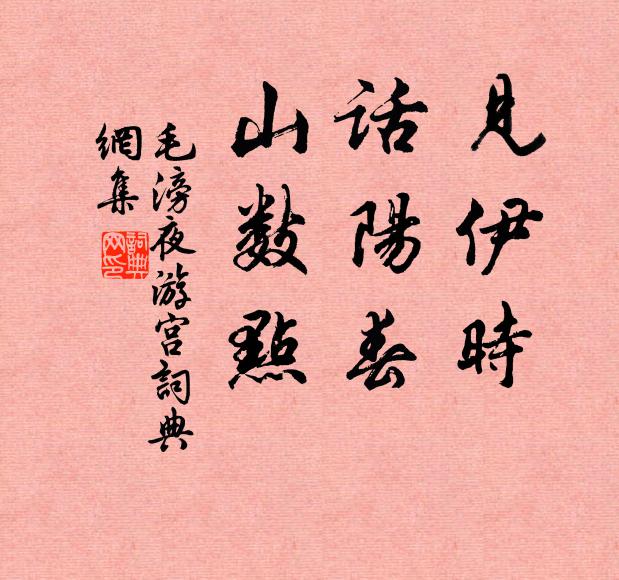 見伊時
話陽春
山數點
毛滂夜游宮詞典
網集
詞典
网印